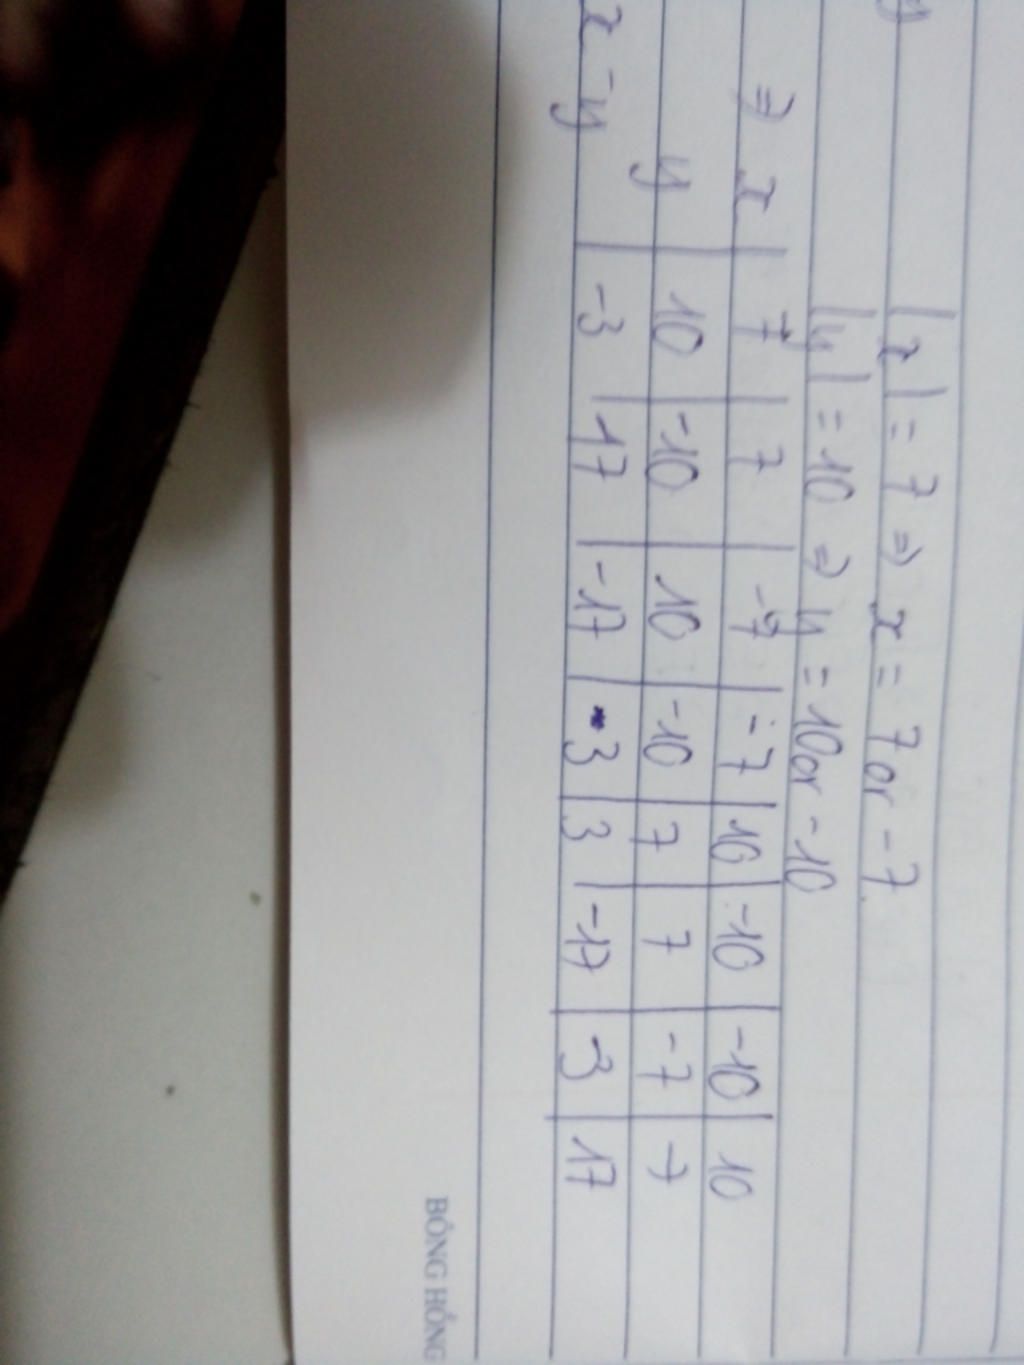 |x| = 7 => x = 7 or -7
|y| = 10 => y = 10 or -10
=> x | 7 | 7 | -7 | -7 | 10 | -10 | -10 | 10
y | 10 | -10 | 10 | -10 | 7 | 7 | -7 | -7
x - y | -3 | 17 | -17 | 3 | 3 | -17 | -3 | 17
BÔNG HỒNG